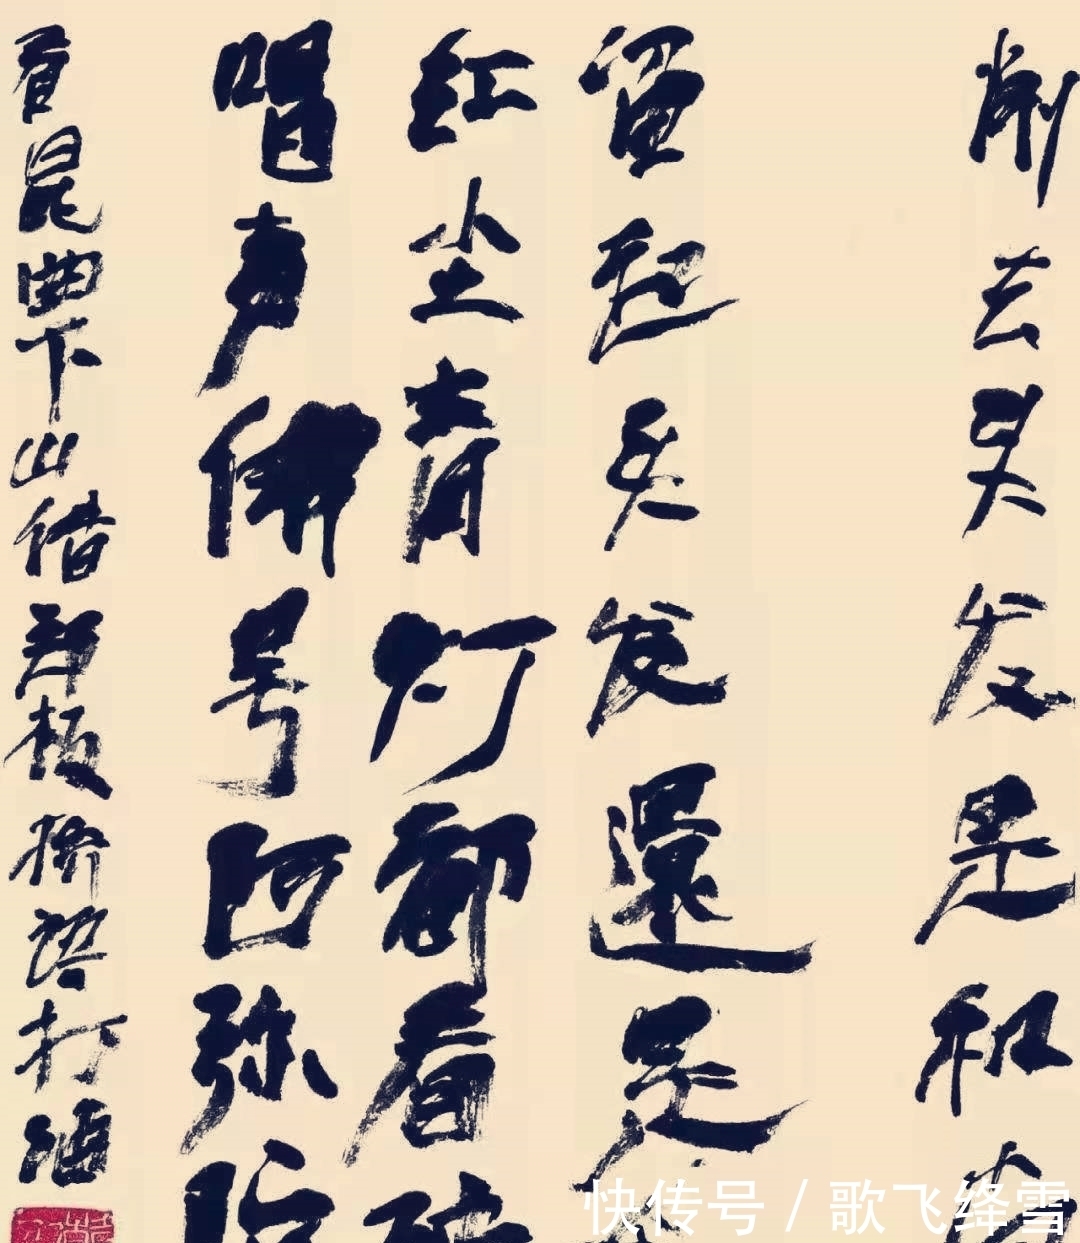 削去头发是和尚
留起头发还是
红尘青灯都看破
唱声佛号阿弥陀
看昆曲下山借郑板桥语打酒
快传号 / 歌飞绛雪